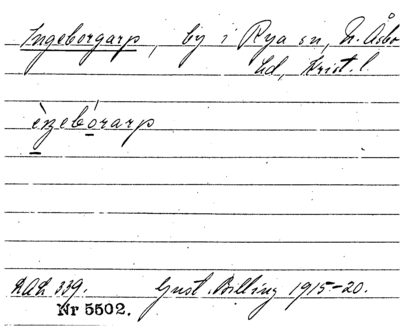 Ingeborgarp, by i Rya sn, N. Åsbo
hd, Krist. l.
èŋebórarp
DAL 339. Gust. Billing 1915-20.
Nr 5502.